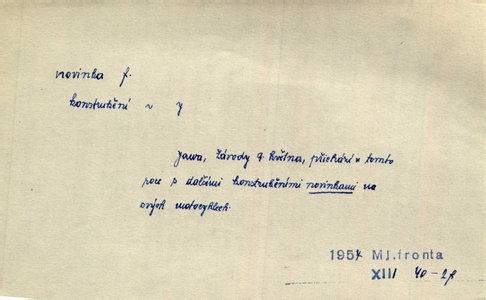 novinka f.
konstrukční v 7
Jawa, Závody 9. května, přichází v tomto
roce s dalšími konstrukčními novinkami na
svých motocyklech.
1957 Ml.fronta
XIII 40-2f